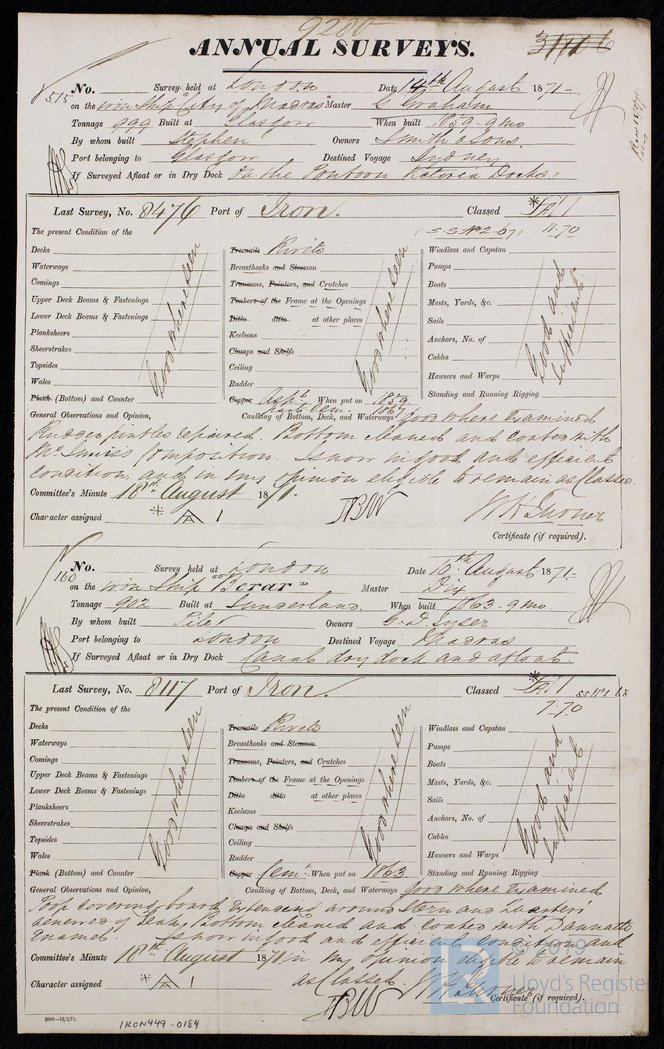 9280
ANNUAL SURVEYS.
No. 515 Survey held at London Date 14th August 1871
on the iron ship "City of Madras" Master G Graham
Tonnage 999 Built at Glasgow When built 1859 - 9 mo
By whom built Stephen Owners Smith & Sons.
Port belonging to Glasgow Destined Voyage Sydney
If Surveyed Afloat or in Dry Dock On the Pontoon Victoria Docks
Last Survey, No. 8476 Port of Iron. Classed A 1
The present Condition of the (S.S. No 2-67) 11.70
Decks Treenails Rivets Windlass and Capstan
Waterways Breasthooks and Stemson Pumps
Comings Transoms, Pointers, and Crutches Boats
Upper Deck Beams & Fastenings Timbers of the Frame at the Openings Masts, Yards, &c.
Lower Deck Beams & Fastenings Ditto ditto at other places Sails
Planksheers Keelsons Anchors, No. of
Sheerstrakes Clamps and Shelfs Cables
Topsides Ceiling Hawsers and Warps
Wales Rudder Standing and Running Rigging
Good where seen Good where seen Good and sufficient
Plank (Bottom) and Counter Copper Asplt When put on 1859
part Cem. 1867
General Observations and Opinion, Caulking of Bottom, Deck, and Waterways Good where Examined
Rudder pintles repaired. Bottom cleaned and coated with
McInnis's Composition. Is now in good and efficient
condition, and in my opinion eligible to remain as Classed.
Committee's Minute 18th August 1871.
Character assigned A 1
Certificate (if required).
No. 160 Survey held at London Date 10th August 1871
on the iron Ship "Berar" Master Dix
Tonnage 902 Built at Sunderland When built 1863 - 9 mo
By whom built Pile Owners G. D. Tyser
Port belonging to London Destined Voyage Madras
If Surveyed Afloat or in Dry Dock Canal dry dock and afloat
Last Survey, No. 8117 Port of Iron. Classed A 1 SS No 1 68
The present Condition of the 7.70
Decks Treenails Rivets Windlass and Capstan
Waterways Breasthooks and Stemson Pumps
Comings Transoms, Pointers, and Crutches Boats
Upper Deck Beams & Fastenings Timbers of the Frame at the Openings Masts, Yards, &c.
Lower Deck Beams & Fastenings Ditto ditto at other places Sails
Planksheers Keelsons Anchors, No. of
Sheerstrakes Clamps and Shelfs Cables
Topsides Ceiling Hawsers and Warps
Wales Rudder Standing and Running Rigging
Good where seen Good where seen Good and sufficient
Plank (Bottom) and Counter Copper Cemt When put on 1863
General Observations and Opinion, Caulking of Bottom, Deck, and Waterways Good where Examined
Poop covering boards extending around Stern and Quarters
renewed of Teak, Bottom cleaned and Coated with Dannatts
Enamel. Is now in good and efficient condition and
Committee's Minute 18th August 1871 in my opinion eligible to remain
as Classed.
Character assigned A 1
Certificate (if required).
2000-13/2/71.
IRON449-0184
© 2019
Lloyd's Register
Foundation